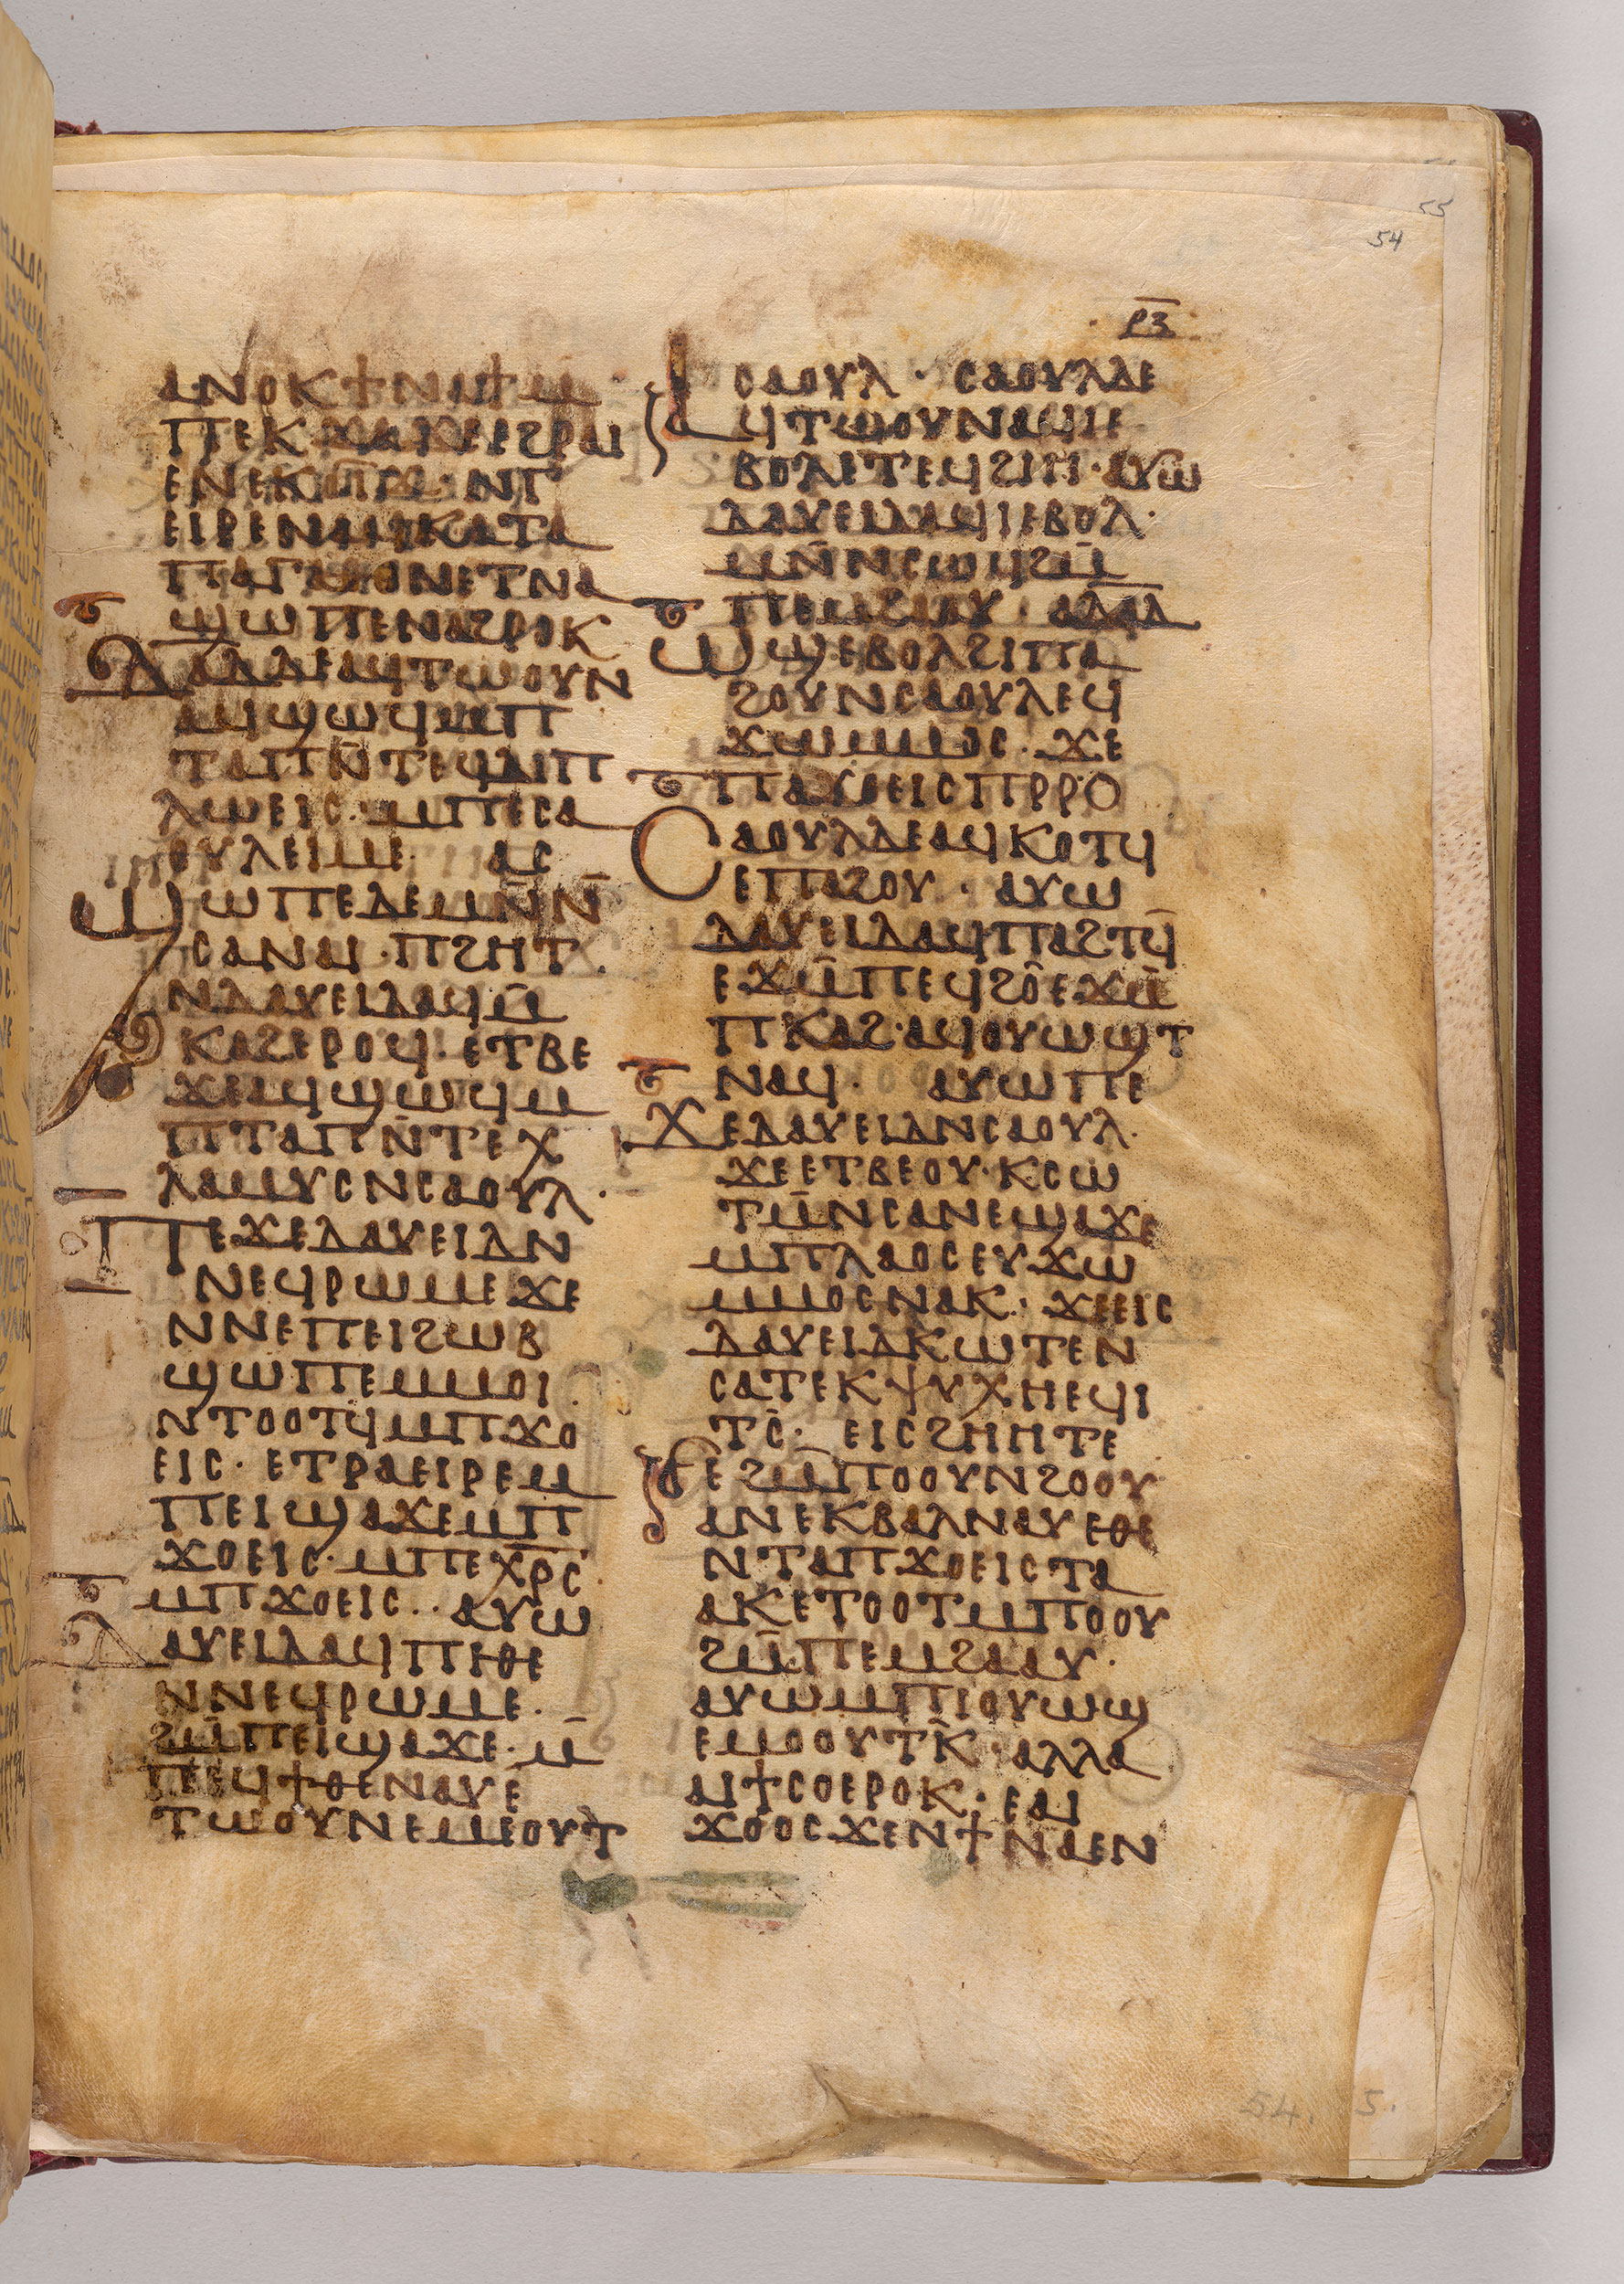 55
54
ⲣⲍ
ⲁⲛⲟⲕϯⲛⲁϯⲙ̄
ⲡⲉⲕϫⲁϫⲉⲉϩⲣⲁⲓ
ⲉⲛⲉⲕϭⲓϫ· ⲛⲅ
ⲉⲓⲣⲉⲛⲁϥⲕⲁⲧⲁ
ⲡⲁⲅⲁⲑⲟⲛⲉⲧⲛⲁ
ϣⲱⲡⲉⲛⲁϩⲣⲟⲕ
ⲇⲁⲇⲇⲉⲁϥⲧⲱⲟⲩⲛ
ⲁϥϣⲱϥⲙⲡ
ⲧⲁⲡⲛ̄ⲧⲉϥⲇⲓⲡ
ⲗⲱⲉⲓⲥ· ⲙⲡⲉⲥⲁ
ⲟⲩⲗⲉⲓⲙⲉ· ⲁⲥ
ϣⲱⲡⲉⲇⲉⲙⲛ̄ⲛ̄
ⲥⲁⲛⲁⲓ· ⲡϩⲏⲧ
ⲛⲇⲁⲩⲉⲓⲇⲁϥⲙ̄
ⲕⲁϩⲉⲣⲟϥ· ⲉⲧⲃⲉ
ϫⲉⲁϥϣⲱϥⲙ
ⲡⲧⲁⲡⲛ̄ⲧⲉⲭ
ⲗⲁⲙⲩⲥⲛⲥⲁⲟⲩⲗ·
ⲡⲉϫⲉⲇⲁⲩⲉⲓⲇⲛ
ⲛⲉϥⲣⲱⲙⲉϫⲉ
ⲛⲛⲉⲡⲉⲓϩⲱⲃ
ϣⲱⲡⲉⲙⲙⲟⲓ
ⲛⲧⲟⲟⲧϥⲙⲡϫⲟ
ⲉⲓⲥ· ⲉⲧⲣⲁⲉⲓⲣⲉⲙ
ⲡⲉⲓϣⲁϫⲉⲙⲡ
ϫⲟⲉⲓⲥ· ⲙⲡⲉⲭⲣ̄ⲥ̄
ⲙⲡϫⲟⲉⲓⲥ·· ⲁⲩⲱ
ⲇⲁⲩⲉⲓⲇⲁϥⲡⲓⲑⲉ
ⲛⲛⲉϥⲣⲱⲙⲉ·
ϩⲙ̄ⲡⲉⲓϣⲁϫⲉ· ⲙ̄
ⲡⲉϥϯⲑⲉⲛⲁⲩⲉ
ⲧⲱⲟⲩⲛⲉⲙⲉⲟⲩⲧ
ⲥⲁⲟⲩⲗ· ⲥⲁⲟⲩⲗⲇⲉ
ⲁϥⲧⲱⲟⲩⲛⲁϥⲓⲉ
ⲃⲟⲗⲉⲧⲉϥϩⲓⲏ· ⲁⲩⲱ
ⲇⲁⲩⲉⲓⲇⲁϥⲓⲉⲃⲟⲗ·
ⲙⲛ̄ⲛⲥⲱϥϩⲙ̄
ⲡⲉⲙϩⲁⲁⲩ ⲁⲇⲁⲇ
ⲱϣⲉⲃⲟⲗϩⲓⲡⲁ
ϩⲟⲩⲛⲥⲁⲟⲩⲗⲉϥ
ϫⲱⲙⲙⲟⲥ· ϫⲉ
ⲡⲁϫⲟⲉⲓⲥⲡⲣⲣⲟ
ⲥⲁⲟⲩⲗⲇⲉⲁϥⲕⲟⲧϥ
ⲉⲡⲁϩⲟⲩ· ⲁⲩⲱ
ⲇⲁⲩⲉⲓⲇⲁϥⲡⲁϩⲧϥ̄
ⲉϫⲙ̄ⲡⲉϥϩⲟ̂ⲉϫⲙ̄
ⲡⲕⲁϩ· ⲁϥⲟⲩⲱϣⲧ
ⲛⲁϥ· ⲁⲩⲱⲡⲉ
ϫⲉⲇⲁⲩⲉⲓⲇⲛⲥⲁⲟⲩⲗ·
ϫⲉⲉⲧⲃⲉⲟⲩ· ⲕⲥⲱ
ⲧⲙ̄ⲛⲥⲁⲛⲉϣⲁϫⲉ
ⲙⲡⲗⲁⲟⲥⲉⲩϫⲱ
ⲙⲙⲟⲥⲛⲁⲕ· ϫⲉⲉⲓⲥ
ⲇⲁⲩⲉⲓⲇⲕⲱⲧⲉⲛ
ⲥⲁⲧⲉⲕⲯⲩⲭⲏⲉϥⲓ
ⲧⲥ̄· ⲉⲓⲥϩⲏⲏⲧⲉ
ⲉϩⲙ̄ⲡⲟⲟⲩⲛϩⲟⲟⲩ
ⲁⲛⲉⲕⲃⲁⲗⲛⲁⲩⲉⲑⲉ
ⲛⲧⲁⲡϫⲟⲉⲓⲥⲧⲁ
ⲁⲕⲉⲧⲟⲟⲧⲙⲡⲟⲟⲩ
ϩⲙ̄ⲡⲉⲙϩⲁⲁⲩ·
ⲁⲩⲱⲙⲡⲓⲟⲩⲱϣ
ⲉⲙⲟⲟⲩⲧⲕ̄· ⲁⲗⲗⲁ
ⲁⲓϯⲥⲟⲉⲣⲟⲕ· ⲉⲁⲓ
ϫⲟⲟⲥϫⲉⲛϯⲛⲁⲉⲛ
54. 5.